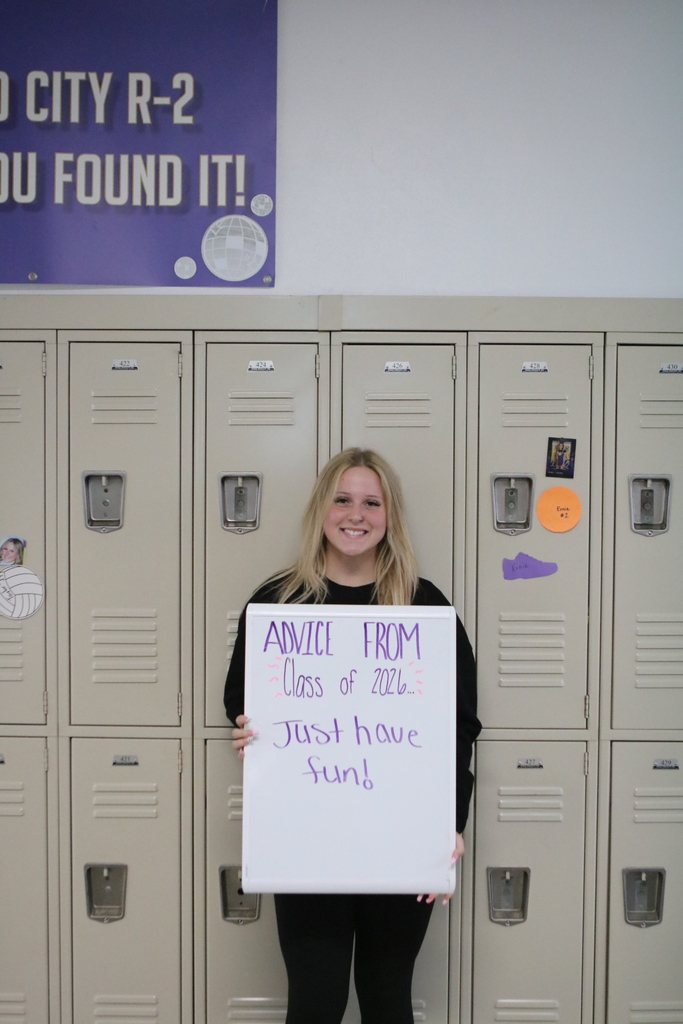 CITY R-2
OU FOUND IT!
422
424
426
428
430
ADVICE FROM
Class of 2026...
Just have
fun!
427